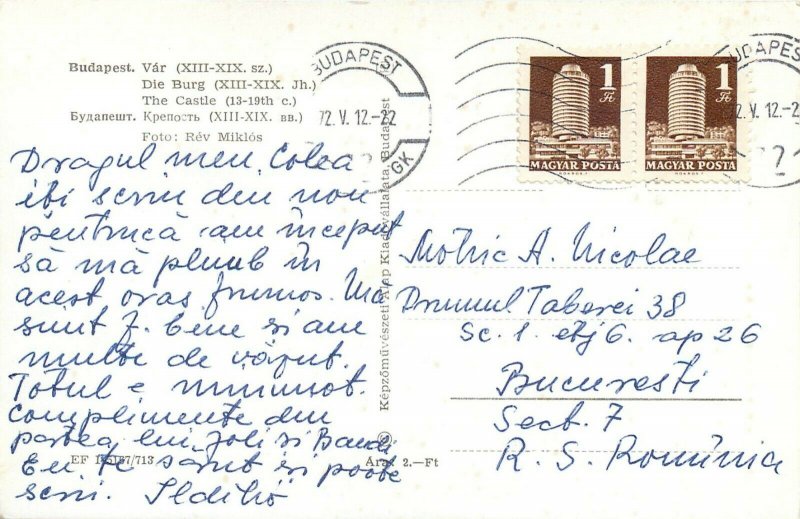 Budapest. Vár (XIII-XIX. sz.)
Die Burg (XIII-XIX. Jh.)
The Castle (13-19th c.)
Будапешт. Крепость (XIII-XIX. вв.)
Foto: Rév Miklós
Dragul meu, Colea
iți scriu din nou
pentrucă am început
să mă plimb în
acest oraș frumos. Mă
simt f. bine și am
multe de văzut.
Totul e minunat.
Complimente din
partea lui Joli și Bandi
Eu. Te sărut și poate
scrii. Ildikó
EF 156167/713
Képzőművészeti Alap Kiadóvállalata, Budapest
Ára: 2.—Ft
BUDAPEST
72. V. 12.-22
GK
1 Ft
MAGYAR POSTA
1 Ft
MAGYAR POSTA
BUDAPEST
72. V. 12.-2
Motric A. Nicolae
Drumul Taberei 38
Sc. 1. etj 6. ap 26
Bucuresti
Sect. 7
R. S. România